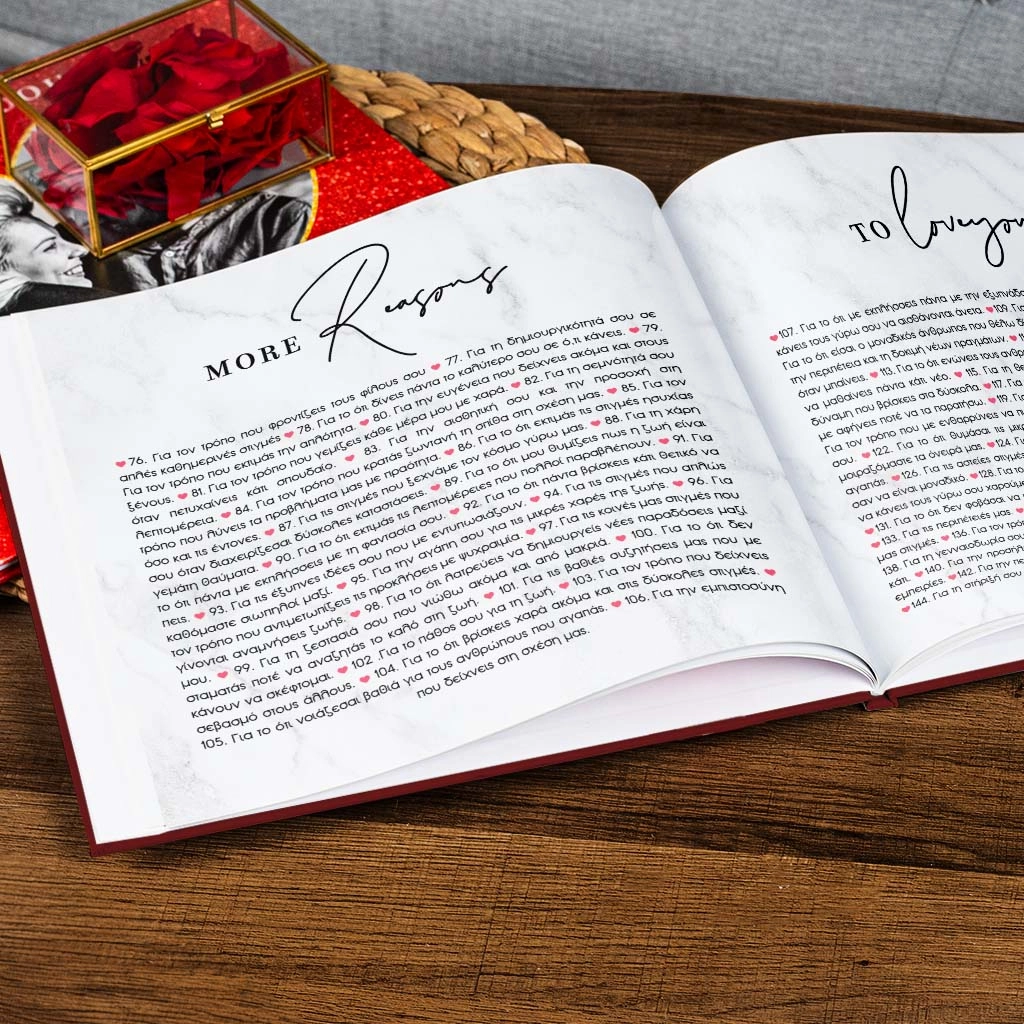 MORE Reasons
♥76. Για τον τρόπο που φροντίζεις τους φίλους σου ♥ 77. Για τη δημιουργικότητά σου σε
απλές καθημερινές στιγμές ♥ 78. Για το ότι δίνεις πάντα το καλύτερο σου σε ό,τι κάνεις. ♥ 79.
Για τον τρόπο που εκτιμάς την απλότητα. ♥ 80. Για την ευγένεια που δείχνεις ακόμα και στους
ξένους. ♥ 81. Για τον τρόπο που γεμίζεις κάθε μέρα μου με χαρά. ♥ 82. Για τη σεμνότητά σου
όταν πετυχαίνεις κάτι σπουδαίο. ♥ 83. Για την αισθητική σου και την προσοχή στη
λεπτομέρεια. ♥ 84. Για τον τρόπο που κρατάς ζωντανή τη σπίθα στη σχέση μας. ♥ 85. Για τον
τρόπο που λύνεις τα προβλήματα μας με πραότητα. ♥ 86. Για το ότι εκτιμάς τις στιγμές ησυχίας
όσο και τις έντονες. ♥ 87. Για τις στιγμές που ξεχνάμε τον κόσμο γύρω μας. ♥ 88. Για τη χάρη
σου όταν διαχειρίζεσαι δύσκολες καταστάσεις. ♥ 89. Για το ότι μου θυμίζεις πως η ζωή είναι
γεμάτη θαύματα. ♥ 90. Για το ότι εκτιμάς τις λεπτομέρειες που πολλοί παραβλέπουν. ♥ 91. Για
το ότι πάντα με εκπλήσσεις με τη φαντασία σου. ♥ 92. Για το ότι πάντα βρίσκεις κάτι θετικό να
πεις. ♥ 93. Για τις έξυπνες ιδέες σου που με εντυπωσιάζουν. ♥ 94. Για τις στιγμές που απλώς
καθόμαστε σιωπηλοί μαζί. ♥ 95. Για την αγάπη σου για τις μικρές χαρές της ζωής. ♥ 96. Για
τον τρόπο που αντιμετωπίζεις τις προκλήσεις με ψυχραιμία. ♥ 97. Για τις κοινές μας στιγμές που
γίνονται αναμνήσεις ζωής. ♥ 98. Για το ότι λατρεύεις να δημιουργείς νέες παραδόσεις μαζί
μου. ♥ 99. Για τη ζεστασιά σου που νιώθω ακόμα και από μακριά. ♥ 100. Για το ότι δεν
σταματάς ποτέ να αναζητάς το καλό στη ζωή. ♥ 101. Για τις βαθιές συζητήσεις μας που με
κάνουν να σκέφτομαι. ♥ 102. Για το πάθος σου για τη ζωή. ♥ 103. Για τον τρόπο που δείχνεις
σεβασμό στους άλλους. ♥ 104. Για το ότι βρίσκεις χαρά ακόμα και στις δύσκολες στιγμές. ♥
105. Για το ότι νοιάζεσαι βαθιά για τους ανθρώπους που αγαπάς. ♥ 106. Για την εμπιστοσύνη
που δείχνεις στη σχέση μας.
TO love you
♥107. Για το ότι με εκπλήσσεις πάντα με την εξυπνάδα
κάνεις τους γύρω σου να αισθάνονται άνετα. ♥109. Για
Για το ότι είσαι ο μοναδικός άνθρωπος που θέλω
την περιπέτεια και τη δοκιμή νέων πραγμάτων. ♥
όταν μπαίνεις. ♥ 113. Για το ότι ενώνεις τους
να μαθαίνεις πάντα κάτι νέο. ♥ 115. Για τη
δύναμη που βρίσκεις στα δύσκολα. ♥117. Για
με αφήνεις ποτέ να τα παρατήσω. ♥119. Για
Για τον τρόπο που με ενθαρρύνεις να
σου. ♥122. Για το ότι θυμάσαι τις
μοιραζόμαστε τα όνειρά μας. ♥124.
αγαπάς. ♥126. Για τις αστείες
σαν να είναι μοναδικό. ♥128. Για
να κάνεις τους γύρω σου
♥131. Για το ότι δεν φοβάσαι να
♥133. Για τις περιπέτειές μας. ♥
μας στιγμές. ♥136. Για τον
138. Για τη γενναιοδωρία σου
κάτι. ♥140. Για την
εμπειρίες. ♥142. Για την
♥144. Για τη στήριξή σου